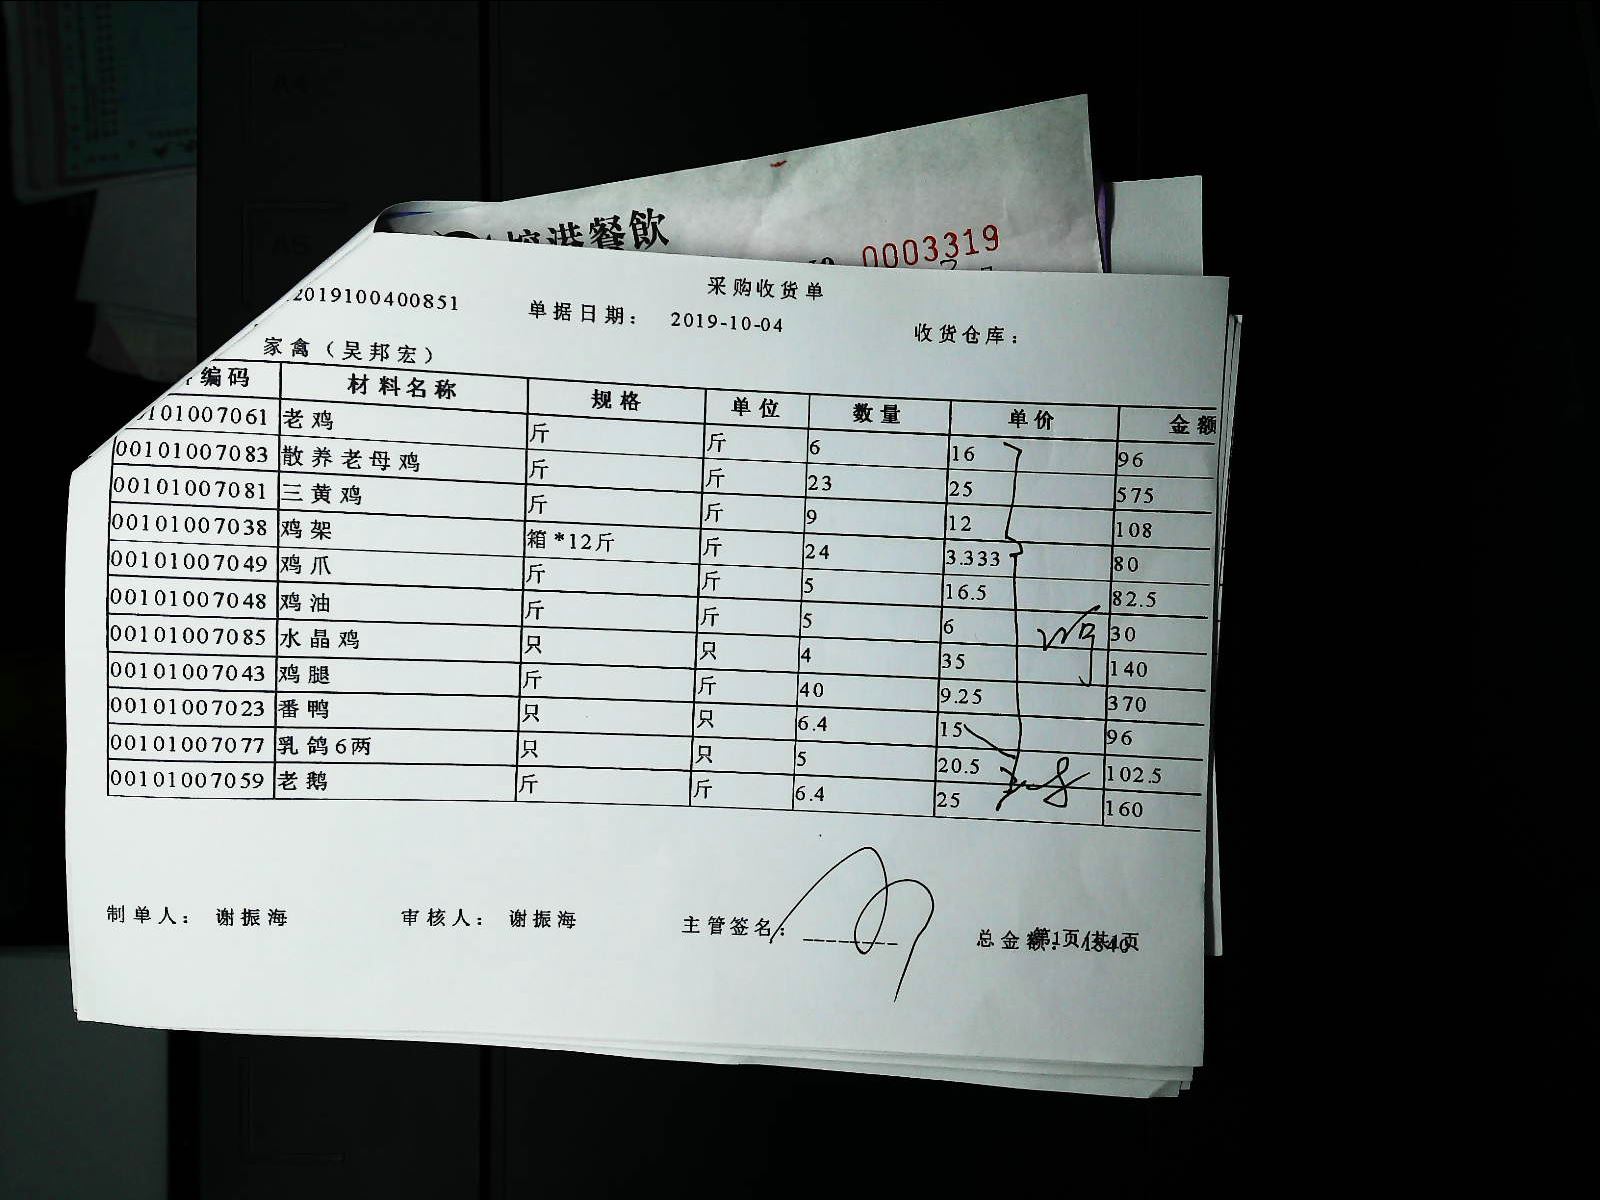 港餐飲
0003319
采购收货单
2019100400851 单据日期： 2019-10-04 收货仓库：
家禽（吴邦宏）
编码 材料名称 规格 单位 数量 单价 金额
101007061 老鸡 斤 斤 6 16 96
00101007083 散养老母鸡 斤 斤 23 25 575
00101007081 三黄鸡 斤 斤 9 12 108
00101007038 鸡架 箱*12斤 斤 24 3.333 80
00101007049 鸡爪 斤 斤 5 16.5 82.5
00101007048 鸡油 斤 斤 5 6 30
00101007085 水晶鸡 只 只 4 35 140
00101007043 鸡腿 斤 斤 40 9.25 370
00101007023 番鸭 只 只 6.4 15 96
00101007077 乳鸽6两 只 只 5 20.5 102.5
00101007059 老鹅 斤 斤 6.4 25 160
制单人： 谢振海 审核人： 谢振海 主管签名： 总金额： 1840
第1页/共1页